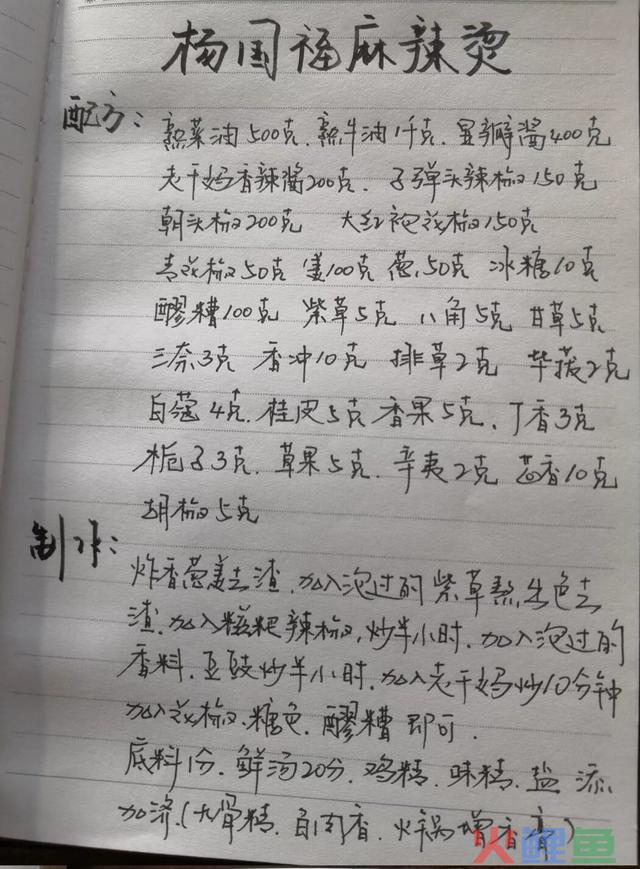 杨国福麻辣烫
配方:
熟菜油500克.熟牛油1千克.豆瓣酱400克
老干妈香辣酱200克.子弹头辣椒150克
朝头椒200克 大红袍花椒150克
青花椒50克 姜100克 葱50克 冰糖10克
醪糟100克 紫草5克 八角5克 甘草5克
三奈3克 香冲10克 排草2克 毕拨2克
白蔻4克.桂皮5克 香果5克、丁香3克
栀子3克.草果5克.辛夷2克 茴香10克
胡椒5克
制作:
炸香葱姜去渣.加入泡过的紫草熬出色去
渣.加入糍粑辣椒,炒半小时.加入泡过的
香料.豆豉炒半小时.加入老干妈炒10分钟
加入花椒.糖色.醪糟即可.
底料1份.鲜汤20分.鸡精.味精.盐 添
加济.(大骨精.自肉香.火锅增香膏)
火鲤鱼